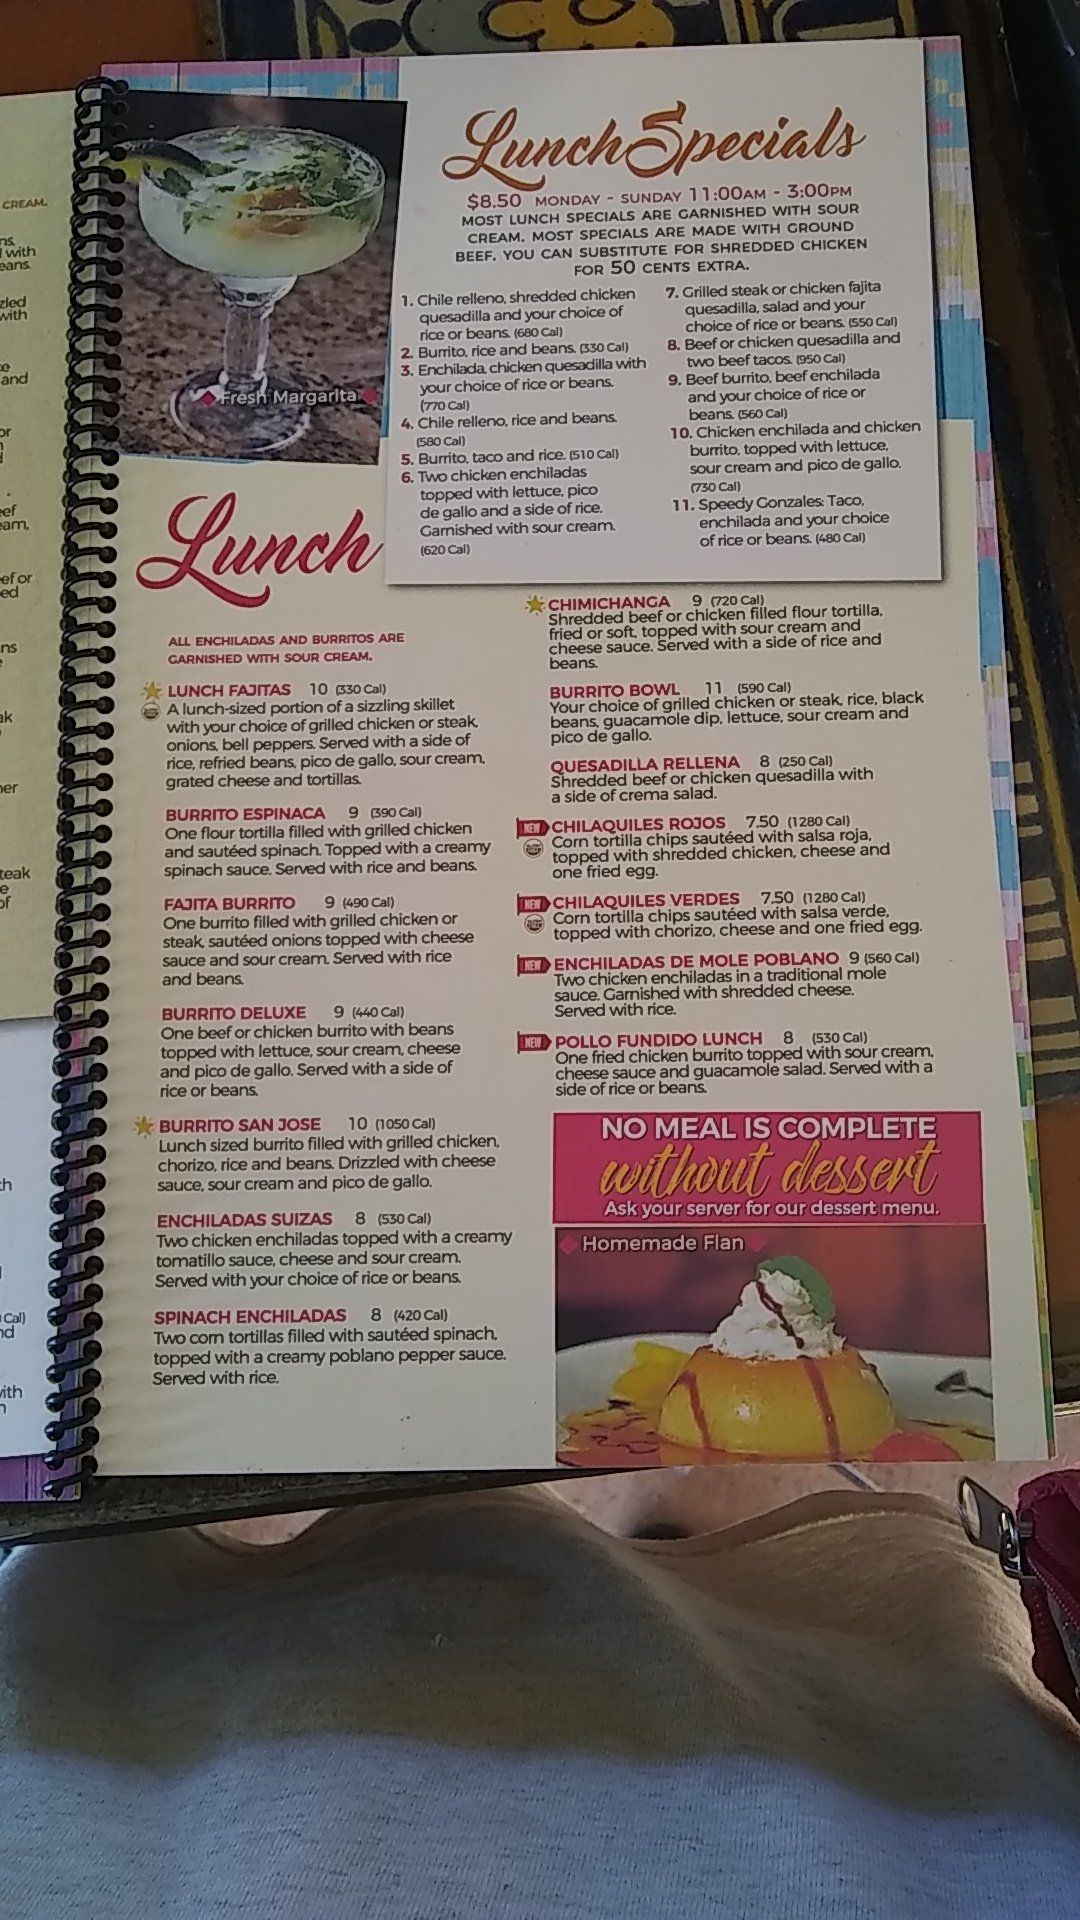 CREAM.
with
eans.
with
and
eam,
ef or
ed
teak
of
Cal)
Fresh Margarita
Lunch Specials
$8.50 MONDAY - SUNDAY 11:00AM - 3:00PM
MOST LUNCH SPECIALS ARE GARNISHED WITH SOUR
CREAM. MOST SPECIALS ARE MADE WITH GROUND
BEEF. YOU CAN SUBSTITUTE FOR SHREDDED CHICKEN
FOR 50 CENTS EXTRA.
1. Chile relleno, shredded chicken
quesadilla and your choice of
rice or beans. (680 Cal)
2. Burrito, rice and beans. (330 Cal)
3. Enchilada, chicken quesadilla with
your choice of rice or beans.
(770 Cal)
4. Chile relleno, rice and beans.
(580 Cal)
5. Burrito, taco and rice. (510 Cal)
6. Two chicken enchiladas
topped with lettuce, pico
de gallo and a side of rice.
Garnished with sour cream.
(620 Cal)
7. Grilled steak or chicken fajita
quesadilla, salad and your
choice of rice or beans. (550 Cal)
8. Beef or chicken quesadilla and
two beef tacos. (950 Cal)
9. Beef burrito, beef enchilada
and your choice of rice or
beans. (560 Cal)
10. Chicken enchilada and chicken
burrito, topped with lettuce,
sour cream and pico de gallo.
(730 Cal)
11. Speedy Gonzales: Taco,
enchilada and your choice
of rice or beans. (480 Cal)
Lunch
ALL ENCHILADAS AND BURRITOS ARE
GARNISHED WITH SOUR CREAM.
LUNCH FAJITAS 10 (330 Cal)
A lunch-sized portion of a sizzling skillet
with your choice of grilled chicken or steak,
onions, bell peppers. Served with a side of
rice, refried beans, pico de gallo, sour cream,
grated cheese and tortillas.
BURRITO ESPINACA 9 (390 Cal)
One flour tortilla filled with grilled chicken
and sautéed spinach. Topped with a creamy
spinach sauce. Served with rice and beans.
FAJITA BURRITO 9 (490 Cal)
One burrito filled with grilled chicken or
steak, sautéed onions topped with cheese
sauce and sour cream. Served with rice
and beans.
BURRITO DELUXE 9 (440 Cal)
One beef or chicken burrito with beans
topped with lettuce, sour cream, cheese
and pico de gallo. Served with a side of
rice or beans.
BURRITO SAN JOSE 10 (1050 Cal)
Lunch sized burrito filled with grilled chicken,
chorizo, rice and beans. Drizzled with cheese
sauce, sour cream and pico de gallo.
ENCHILADAS SUIZAS 8 (530 Cal)
Two chicken enchiladas topped with a creamy
tomatillo sauce, cheese and sour cream.
Served with your choice of rice or beans.
SPINACH ENCHILADAS 8 (420 Cal)
Two corn tortillas filled with sautéed spinach,
topped with a creamy poblano pepper sauce.
Served with rice.
CHIMICHANGA 9 (720 Cal)
Shredded beef or chicken filled flour tortilla,
fried or soft, topped with sour cream and
cheese sauce. Served with a side of rice and
beans.
BURRITO BOWL 11 (590 Cal)
Your choice of grilled chicken or steak, rice, black
beans, guacamole dip, lettuce, sour cream and
pico de gallo.
QUESADILLA RELLENA 8 (250 Cal)
Shredded beef or chicken quesadilla with
a side of crema salad.
NEW CHILAQUILES ROJOS 7.50 (1280 Cal)
Corn tortilla chips sautéed with salsa roja,
topped with shredded chicken, cheese and
one fried egg.
NEW CHILAQUILES VERDES 7.50 (1280 Cal)
Corn tortilla chips sautéed with salsa verde,
topped with chorizo, cheese and one fried egg.
NEW ENCHILADAS DE MOLE POBLANO 9 (560 Cal)
Two chicken enchiladas in a traditional mole
sauce. Garnished with shredded cheese.
Served with rice.
NEW POLLO FUNDIDO LUNCH 8 (530 Cal)
One fried chicken burrito topped with sour cream,
cheese sauce and guacamole salad. Served with a
side of rice or beans.
NO MEAL IS COMPLETE
without dessert
Ask your server for our dessert menu.
Homemade Flan